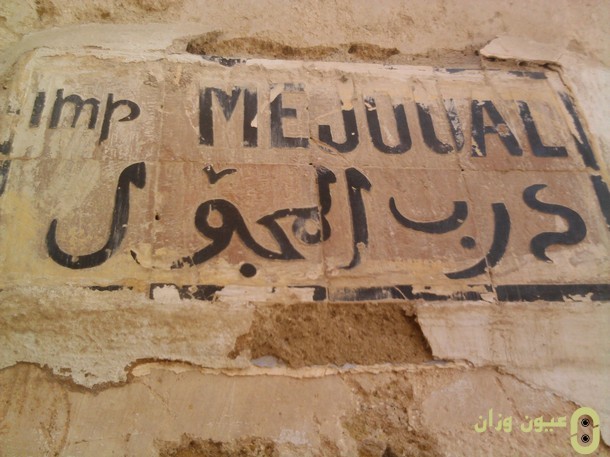 Imp MEJOUAL
درب المجوّل
عيون وزان